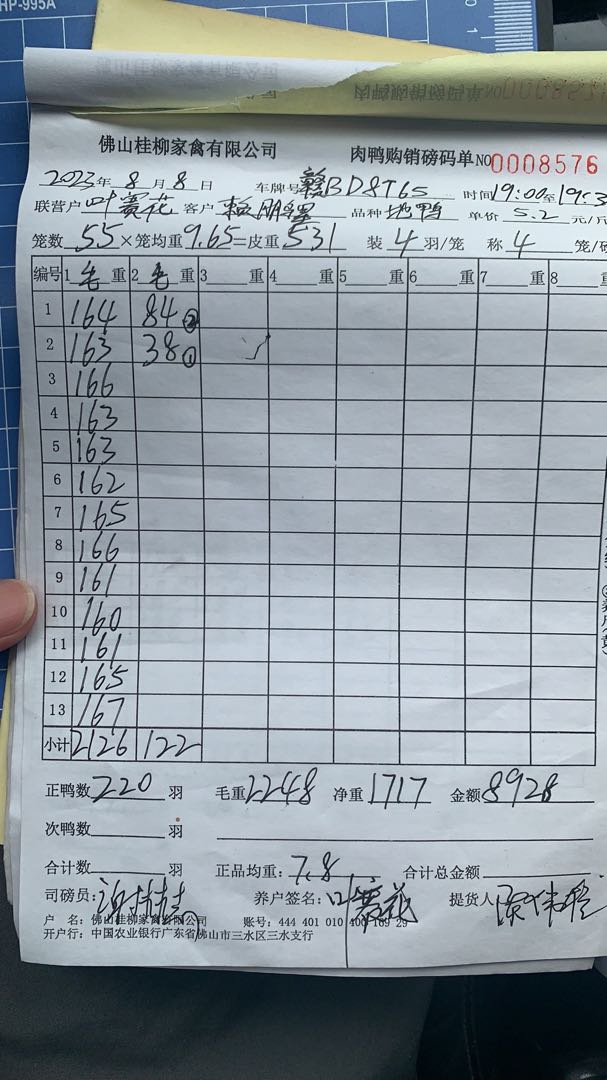 HP-995A
佛山桂柳家禽有限公司 肉鸭购销磅码单 NO 0008576
2023年 8月 8日 车牌号 赣BD8T65 时间 19:00至19:3
联营户 叶赛花 客户 品种 地鸭 单价 5.2 元/斤
笼数 55 × 笼均重 9.65 = 皮重 531 装 4 羽/笼 称 4 笼/
编号 1 毛 重 2 毛 重 3 重 4 重 5 重 6 重 7 重 8
1 164 84 ②
2 163 38 ①
3 166
4 163
5 163
6 162
7 165
8 166
9 161
10 160
11 161
12 165
13 167
小计 2126 122
正鸭数 220 羽 毛重 2248 净重 1717 金额 8928
次鸭数 羽
合计数 羽 正品均重: 7.8 合计总金额
司磅员: 养户签名: 叶赛花 提货人
户 名: 佛山桂柳家禽有限公司 账号: 444 401 010 400 169 29
开户行: 中国农业银行广东省佛山市三水区三水支行